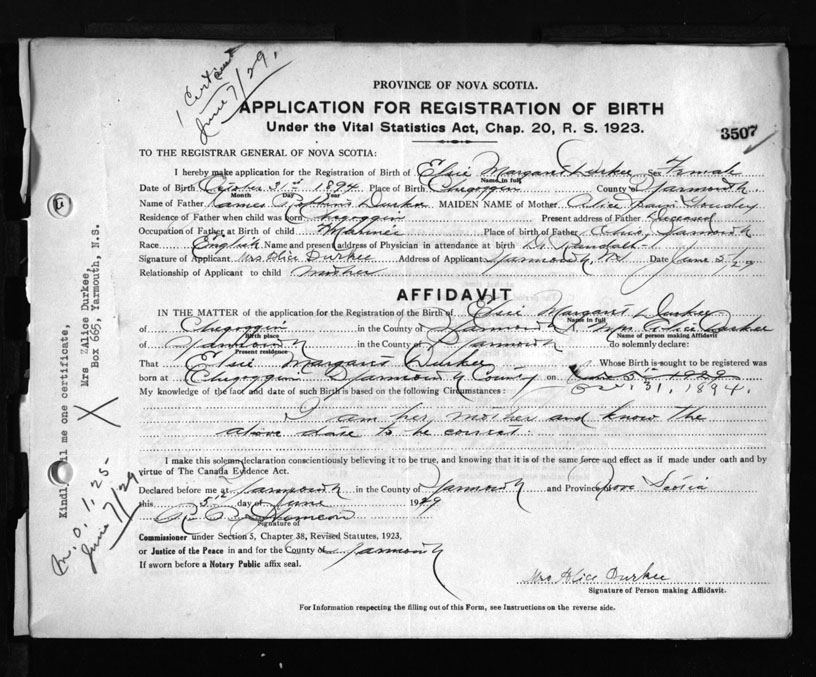 1 Cert sent
June 7/29.
PROVINCE OF NOVA SCOTIA.
APPLICATION FOR REGISTRATION OF BIRTH
Under the Vital Statistics Act, Chap. 20, R. S. 1923.
3507
TO THE REGISTRAR GENERAL OF NOVA SCOTIA:
I hereby make application for the Registration of Birth of Elsie Margaret Durkee Sex Female
Name in full
Date of Birth October 31st 1894 Place of Birth Chegoggin County of Yarmouth
Month Day Year
Name of Father James Durkee MAIDEN NAME of Mother Alice Goudey
Residence of Father when child was born Chegoggin Present address of Father Deceased
Occupation of Father at Birth of child Place of Birth of Father Ohio, Yarmouth
Race English Name and present address of Physician in attendance at birth Dr Randall
Signature of Applicant Mrs Alice Durkee Address of Applicant Yarmouth NS Date June 5/29
Relationship of Applicant to child mother
AFFIDAVIT
IN THE MATTER of the application for the Registration of the Birth of Elsie Margaret Durkee
Name in full
of Chegoggin in the County of Yarmouth I, Mrs Alice Durkee
Birth place Name of person making Affidavit
of Yarmouth in the County of Yarmouth do solemnly declare:
Present residence
That Elsie Margaret Durkee Whose Birth is sought to be registered was
born at Chegoggin Yarmouth County on June 5th 1929
Oct. 31, 1894.
My knowledge of the fact and date of such Birth is based on the following Circumstances:
I am her mother and know the
above date to be correct.
I make this solemn declaration conscientiously believing it to be true, and knowing that it is of the same force and effect as if made under oath and by
virtue of The Canada Evidence Act.
Declared before me at Yarmouth in the County of Yarmouth and Province Nova Scotia
this 5th day of June 1929
Signature of
Commissioner under Section 5, Chapter 38, Revised Statutes, 1923,
or Justice of the Peace in and for the County of Yarmouth
If sworn before a Notary Public affix seal.
Mrs Alice Durkee
Signature of Person making Affidavit.
For Information respecting the filling out of this Form, see Instructions on the reverse side.
Kindly mail me one certificate,
Mrs ZAlice Durkee,
Box 665, Yarmouth, N.S.
X
M. O. 1.25
June 7/29